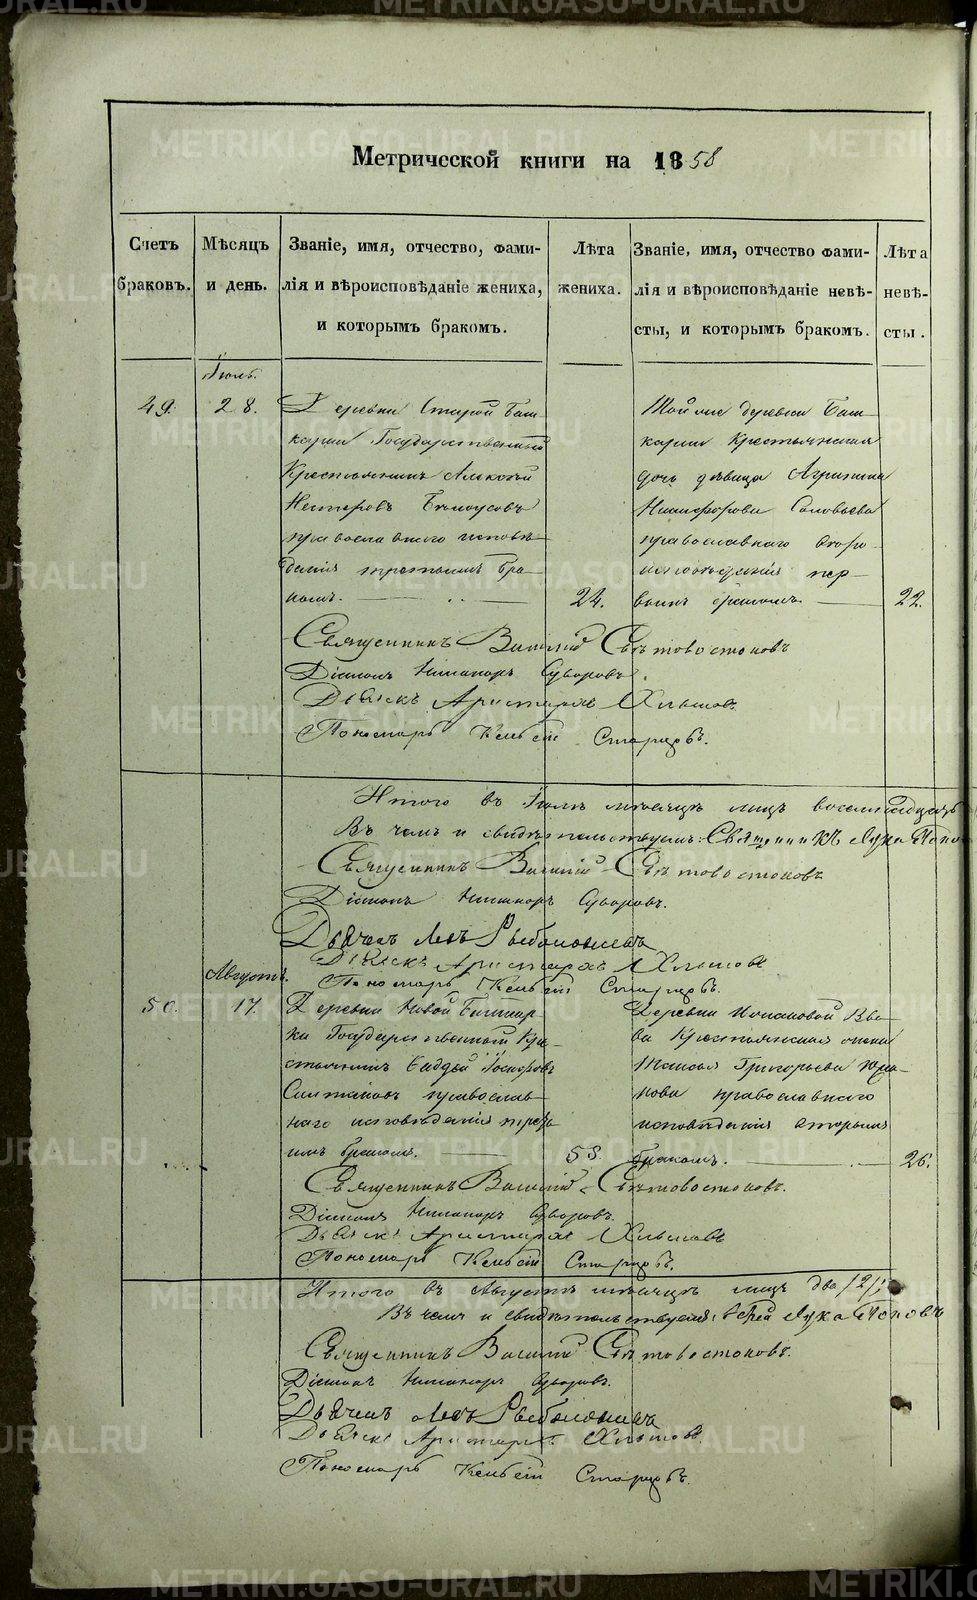 METRIKI.GASO-URAL.RU
Метрической книги на 1858
Счетъ браковъ.
Мѣсяцъ и день.
Званіе, имя, отчество, фами-
лія и вѣроисповѣданіе жениха,
и которымъ бракомъ.
Лѣта жениха.
Званіе, имя, отчество фами-
лія и вѣроисповѣданіе невѣ-
сты, и которымъ бракомъ.
Лѣта невѣ-
сты.
Іюль.
49.
28.
Деревни Старой Баш-
карки Государственный
Крестьянинъ
Нестеровъ Бѣлоусовъ
православнаго исповѣ-
данія третьимъ бра-
комъ.
24.
Той же деревни Баш-
карки Крестьянская
дочь дѣвица Агрипина
Никифорова Соловьева
православнаго
исповѣданія пер-
вымъ бракомъ
22.
Священникъ Василій Свѣтовостоковъ
Діаконъ Никаноръ Суворовъ.
Дьячекъ Аристархъ Хлыновъ
Пономарь Старцовъ.
Итого въ Іюлѣ мѣсяцѣ лицъ
Въ чемъ и свидѣтельствуемъ: Священникъ Лука Попо
Священникъ Василій Свѣтовостоковъ
Діаконъ Никаноръ Суворовъ.
Дьячекъ Левъ
Дьячекъ Аристархъ Хлыновъ
Пономарь Старцовъ.
Августъ.
50.
17.
Деревни Новой Башкар-
ки Государственный Кре-
стьянинъ Фаддей
православ-
наго исповѣданія треть-
имъ бракомъ.
53.
Деревни
Крестьянская
Таисья Григорьева
нова православнаго
исповѣданія вторымъ
бракомъ.
26.
Священникъ Василій Свѣтовостоковъ.
Діаконъ Никаноръ Суворовъ.
Дьячекъ Аристархъ Хлыновъ
Пономарь Старцовъ.
Итого въ Августѣ мѣсяцѣ лицъ два /2/
Въ чемъ и свидѣтельствуемъ: Іерей Лука Поповъ
Священникъ Василій Свѣтовостоковъ.
Діаконъ Никаноръ Суворовъ.
Дьячекъ Левъ
Дьячекъ Аристархъ Хлыновъ
Пономарь Старцовъ.
METRIKI.GASO-URAL.RU